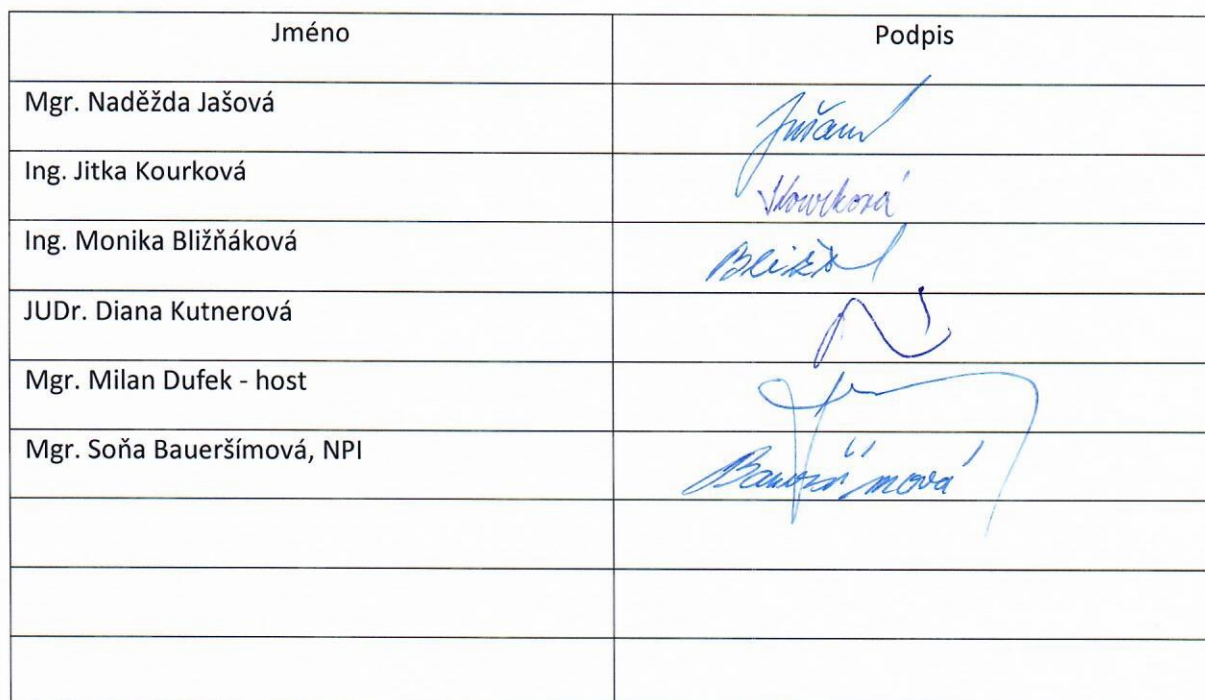 Jméno Podpis
Mgr. Naděžda Jašová
Ing. Jitka Kourková Kourková
Ing. Monika Bližňáková
JUDr. Diana Kutnerová
Mgr. Milan Dufek - host
Mgr. Soňa Baueršímová, NPI